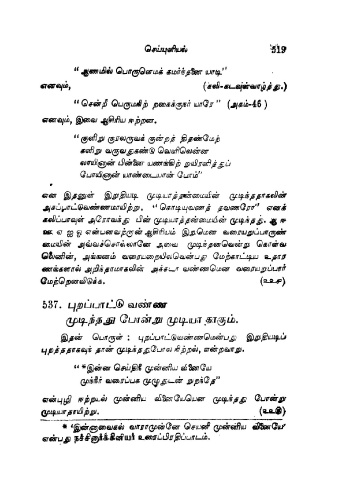 செய்யுளியல் 519
"ஆணமில் பொருளெமக் கமர்ந்தனை யாடி"
எனவும், (கலி-கடவுள்வாழ்த்து.)
"சென்றீ பெருமநிற் றகைக்குநர் யாரே" (அகம்-46)
எனவும், இவை ஆசிரிய ஈற்றன.
"குளிறு குரலருவக் குன்றத் திதண்மேற்
களிறு வருவதுகண்டு வெயிலென்ன
லாயினான் பின்னை யணங்கிற் றுயிரளித்துப்
போயினான் யாண்டையான் போம்"
என இதனுள் இறுதியடி முடியாத்தன்மையின் முடிந்ததாகலின்
அகப்பாட்டுவண்ணமாயிற்று. "கொடியுவணத் தவணரோ" எனக்
கலிப்பாவுள் அரோவந்து பின் முடியாத்தன்மையின் முடிந்தது. ஆ ஈ
ஊ ஏ ஐ ஓ என்பனவற்றான் ஆசிரியம் இறுமென வரையறுப்பாருண்
மையின் அவ்வச்சொல்லானே அவை முடிந்தனவென்று கொள்வ
லெனின், அங்ஙனம் வரையறையிலவென்பது மேற்காட்டிய உதார
ணங்களால் அறிந்தாமாகலின் அச்சுடா வண்ணமென வரையறுப்பார்
மேற்றெனவிடுக்க. (௨௨௪)
537. புறப்பாட்டு வண்ண
முடிந்தது போன்று முடியா தாகும்.
இதன் பொருள் : புறப்பாட்டுவண்ணமென்பது இறுதியடிப்
புறத்ததாகவுந் தான் முடிந்ததுபோல நிற்றல், என்றவாறு.
"*இன்ன செய்திநீ முன்னிய வினையே
முந்நீர் வரைப்பக முழுதுடன் றுறந்தே"
என்புழி ஈற்றயல் முன்னிய வினையேயென முடிந்தது போன்று
முடியாதாயிற்று. (௨௨௫)
* 'இன்னாவைகல் வாராமுன்னே செயனீ முன்னிய வினையே'
என்பது நச்சினார்க்கினியர் உரைப்பிரதிப்பாடம்.